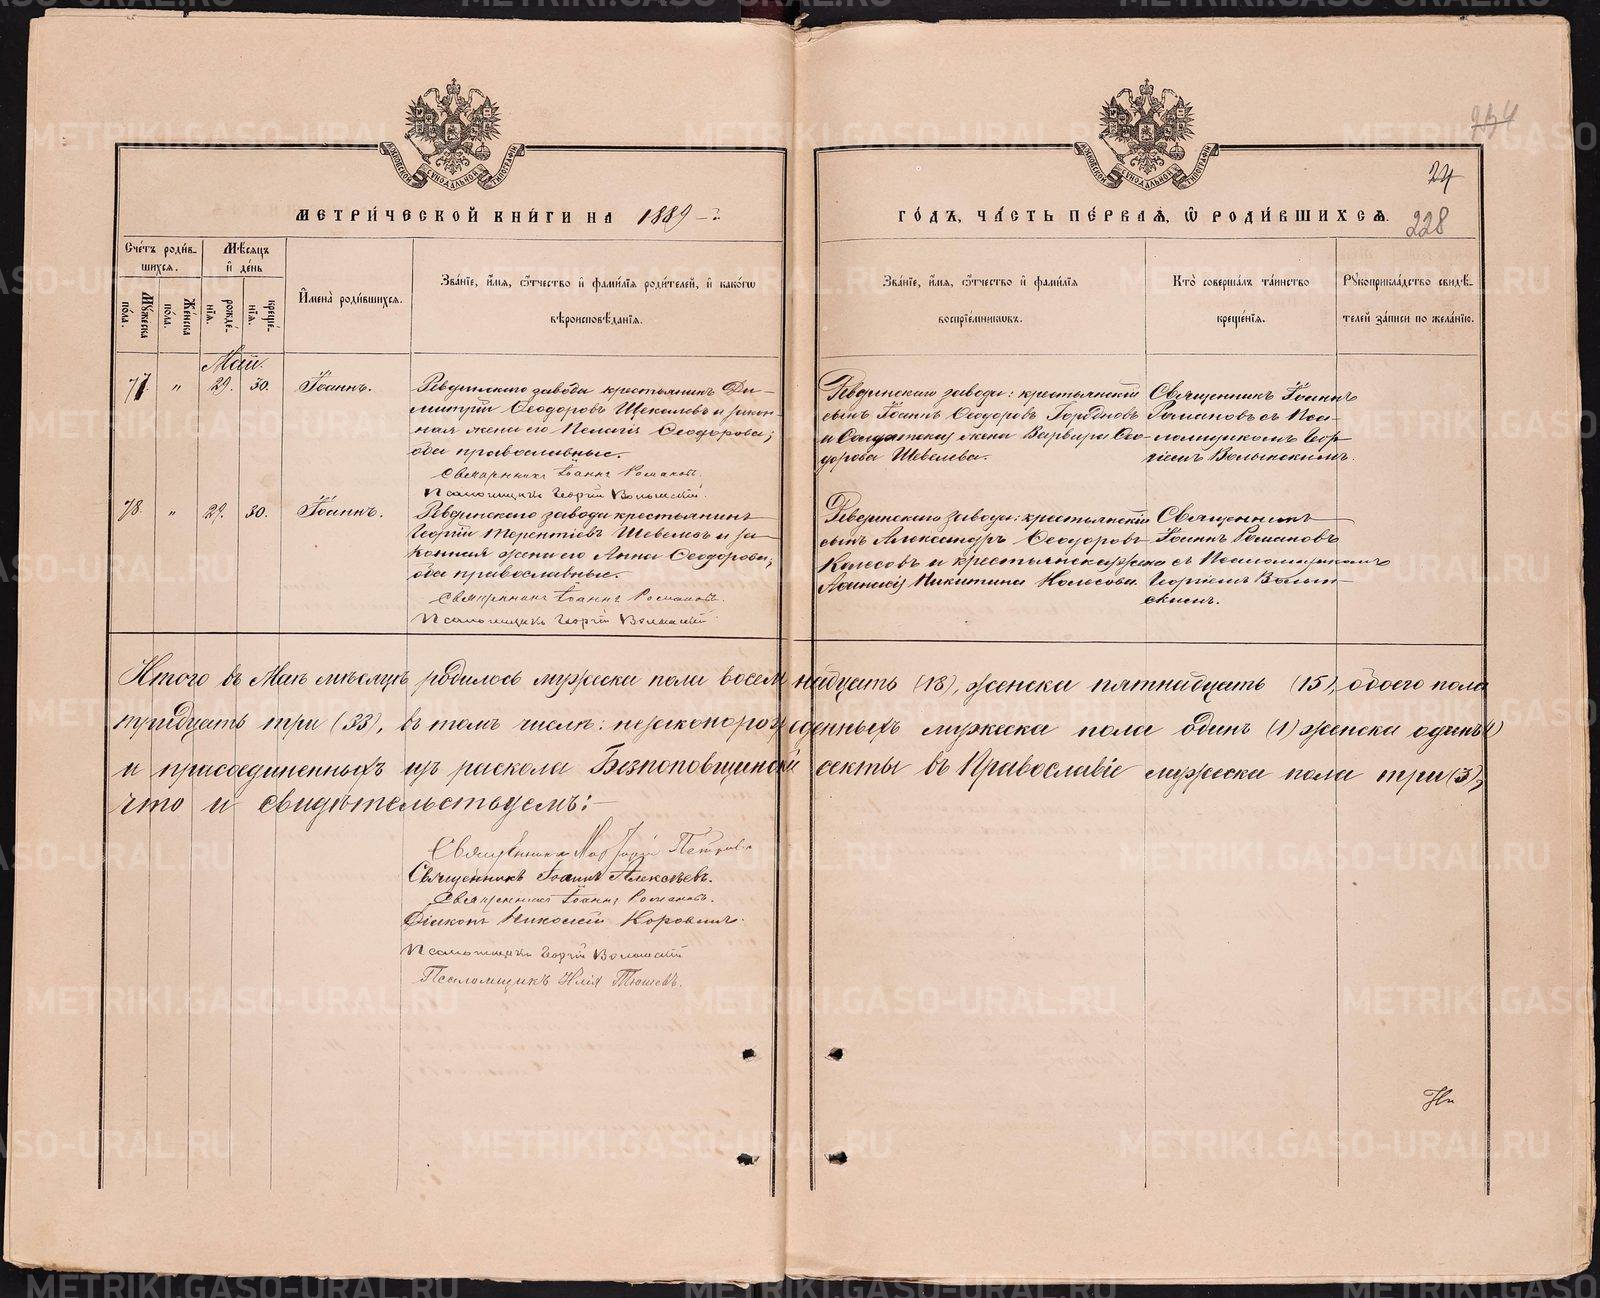 234
24
228
МЕТРИ́ЧЕСКОЙ КНИ́ГИ НА 1889-й
ГО́ДЪ, ЧА́СТЬ ПЕ́РВАЯ, Ѡ РОДИ́ВШИХСЯ.
Сче́тъ роди́вшихся.
Мѣ́сяцъ и де́нь
Му́жеска по́ла.
Же́нска по́ла.
рожде́нїя.
креще́нїя.
Имена̀ роди́вшихся.
Зва́нїе, и́мя, ѻ҆́тчество и фами́лїя роди́телей, и како́гѡ
вѣроисповѣ́данїя.
Зва́нїе, и́мя, ѻ҆́тчество и фами́лїя
воспрїе́мникѡвъ.
Кто̀ соверша́лъ та́инство
креще́нїя.
Рꙋкоприкла́дство свидѣ́-
телей за́писи по жела́нїю.
Май.
77. " 29. 30. Іоаннъ.
Ревдинскаго завода крестьянинъ Ди-
митрій Ѳеодоровъ Шевелевъ и закон-
ная жена его Пелагія Ѳеодорова;
оба православные.
Священникъ Іоаннъ Романовъ.
Псаломщикъ Георгій Волынскій.
Ревдинскаго завода: крестьянскій
сынъ Іоаннъ Ѳеодоровъ
и Солдатская жена Варвара Ѳео-
дорова Шевелева.
Священникъ Іоаннъ
Романовъ съ Пса-
ломщикомъ Геор-
гіемъ Волынскимъ.
78. " 29. 30. Іоаннъ.
Ревдинскаго завода крестьянинъ
Георгій Терентіевъ Шевелевъ и за-
конная жена его Анна Ѳеодорова;
оба православные.
Священникъ Іоаннъ Романовъ.
Псаломщикъ Георгій Волынскій.
Ревдинскаго завода: крестьянскій
сынъ Александръ Ѳеодоровъ
Колосовъ и крестьянская жена
Аѳанасія Никитина Колосова.
Священникъ
Іоаннъ Романовъ
съ Псаломщикомъ
Георгіемъ Волын-
скимъ.
Итого въ Маѣ мѣсяцѣ родилось мужеска пола восемнадцать (18), женска пятнадцать (15), обоего пола
тридцать три (33), въ томъ числѣ: незаконорожденныхъ мужеска пола одинъ (1) женска одинъ (1)
и присоединенныхъ изъ раскола Безпоповщинской секты въ Православіе мужеска пола три (3),
что и свидѣтельствуемъ:
Священникъ Петровъ
Священникъ Іоаннъ Алексѣевъ.
Священникъ Іоаннъ Романовъ.
Діаконъ Николай Коровинъ.
Псаломщикъ Георгій Волынскій
Псаломщикъ Илія Тюшевъ.
METRIKI.GASO-URAL.RU